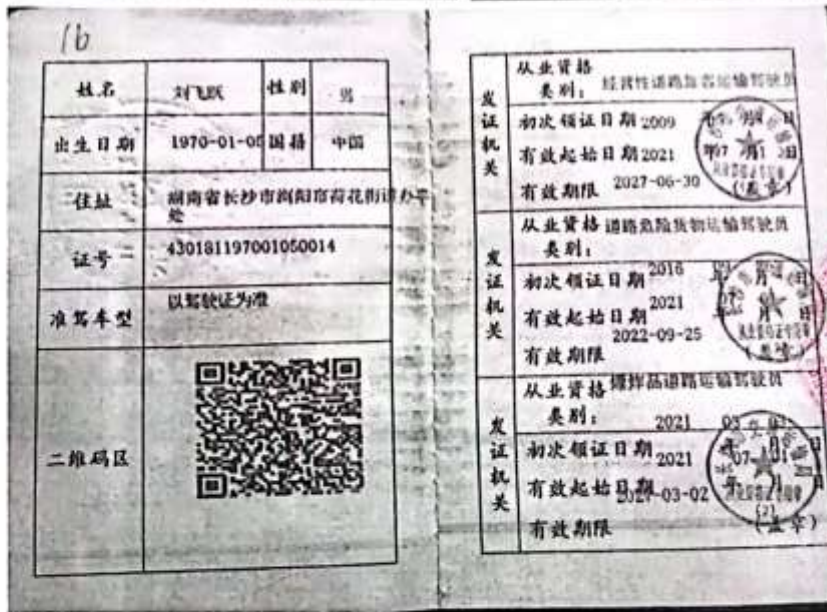 16
姓名 刘飞跃 性别 男
出生日期 1970-01-05 国籍 中国
住址 湖南省长沙市浏阳市荷花街道办事处
证号 430181197001050014
准驾车型 以驾驶证为准
二维码区
发证机关
从业资格类别: 经营性道路旅客运输驾驶员
初次领证日期 2009 日
有效起始日期 2021 07 日
有效期限 2027-06-30
(盖章)
发证机关
从业资格类别: 道路危险货物运输驾驶员
初次领证日期 2016 月 日
有效起始日期 2021 07 月 日
有效期限 2022-09-25
(盖章)
发证机关
从业资格类别: 爆炸品道路运输驾驶员
初次领证日期 2021 03
有效起始日期 2021 07 月
有效期限 2027-03-02
(2)
(盖章)